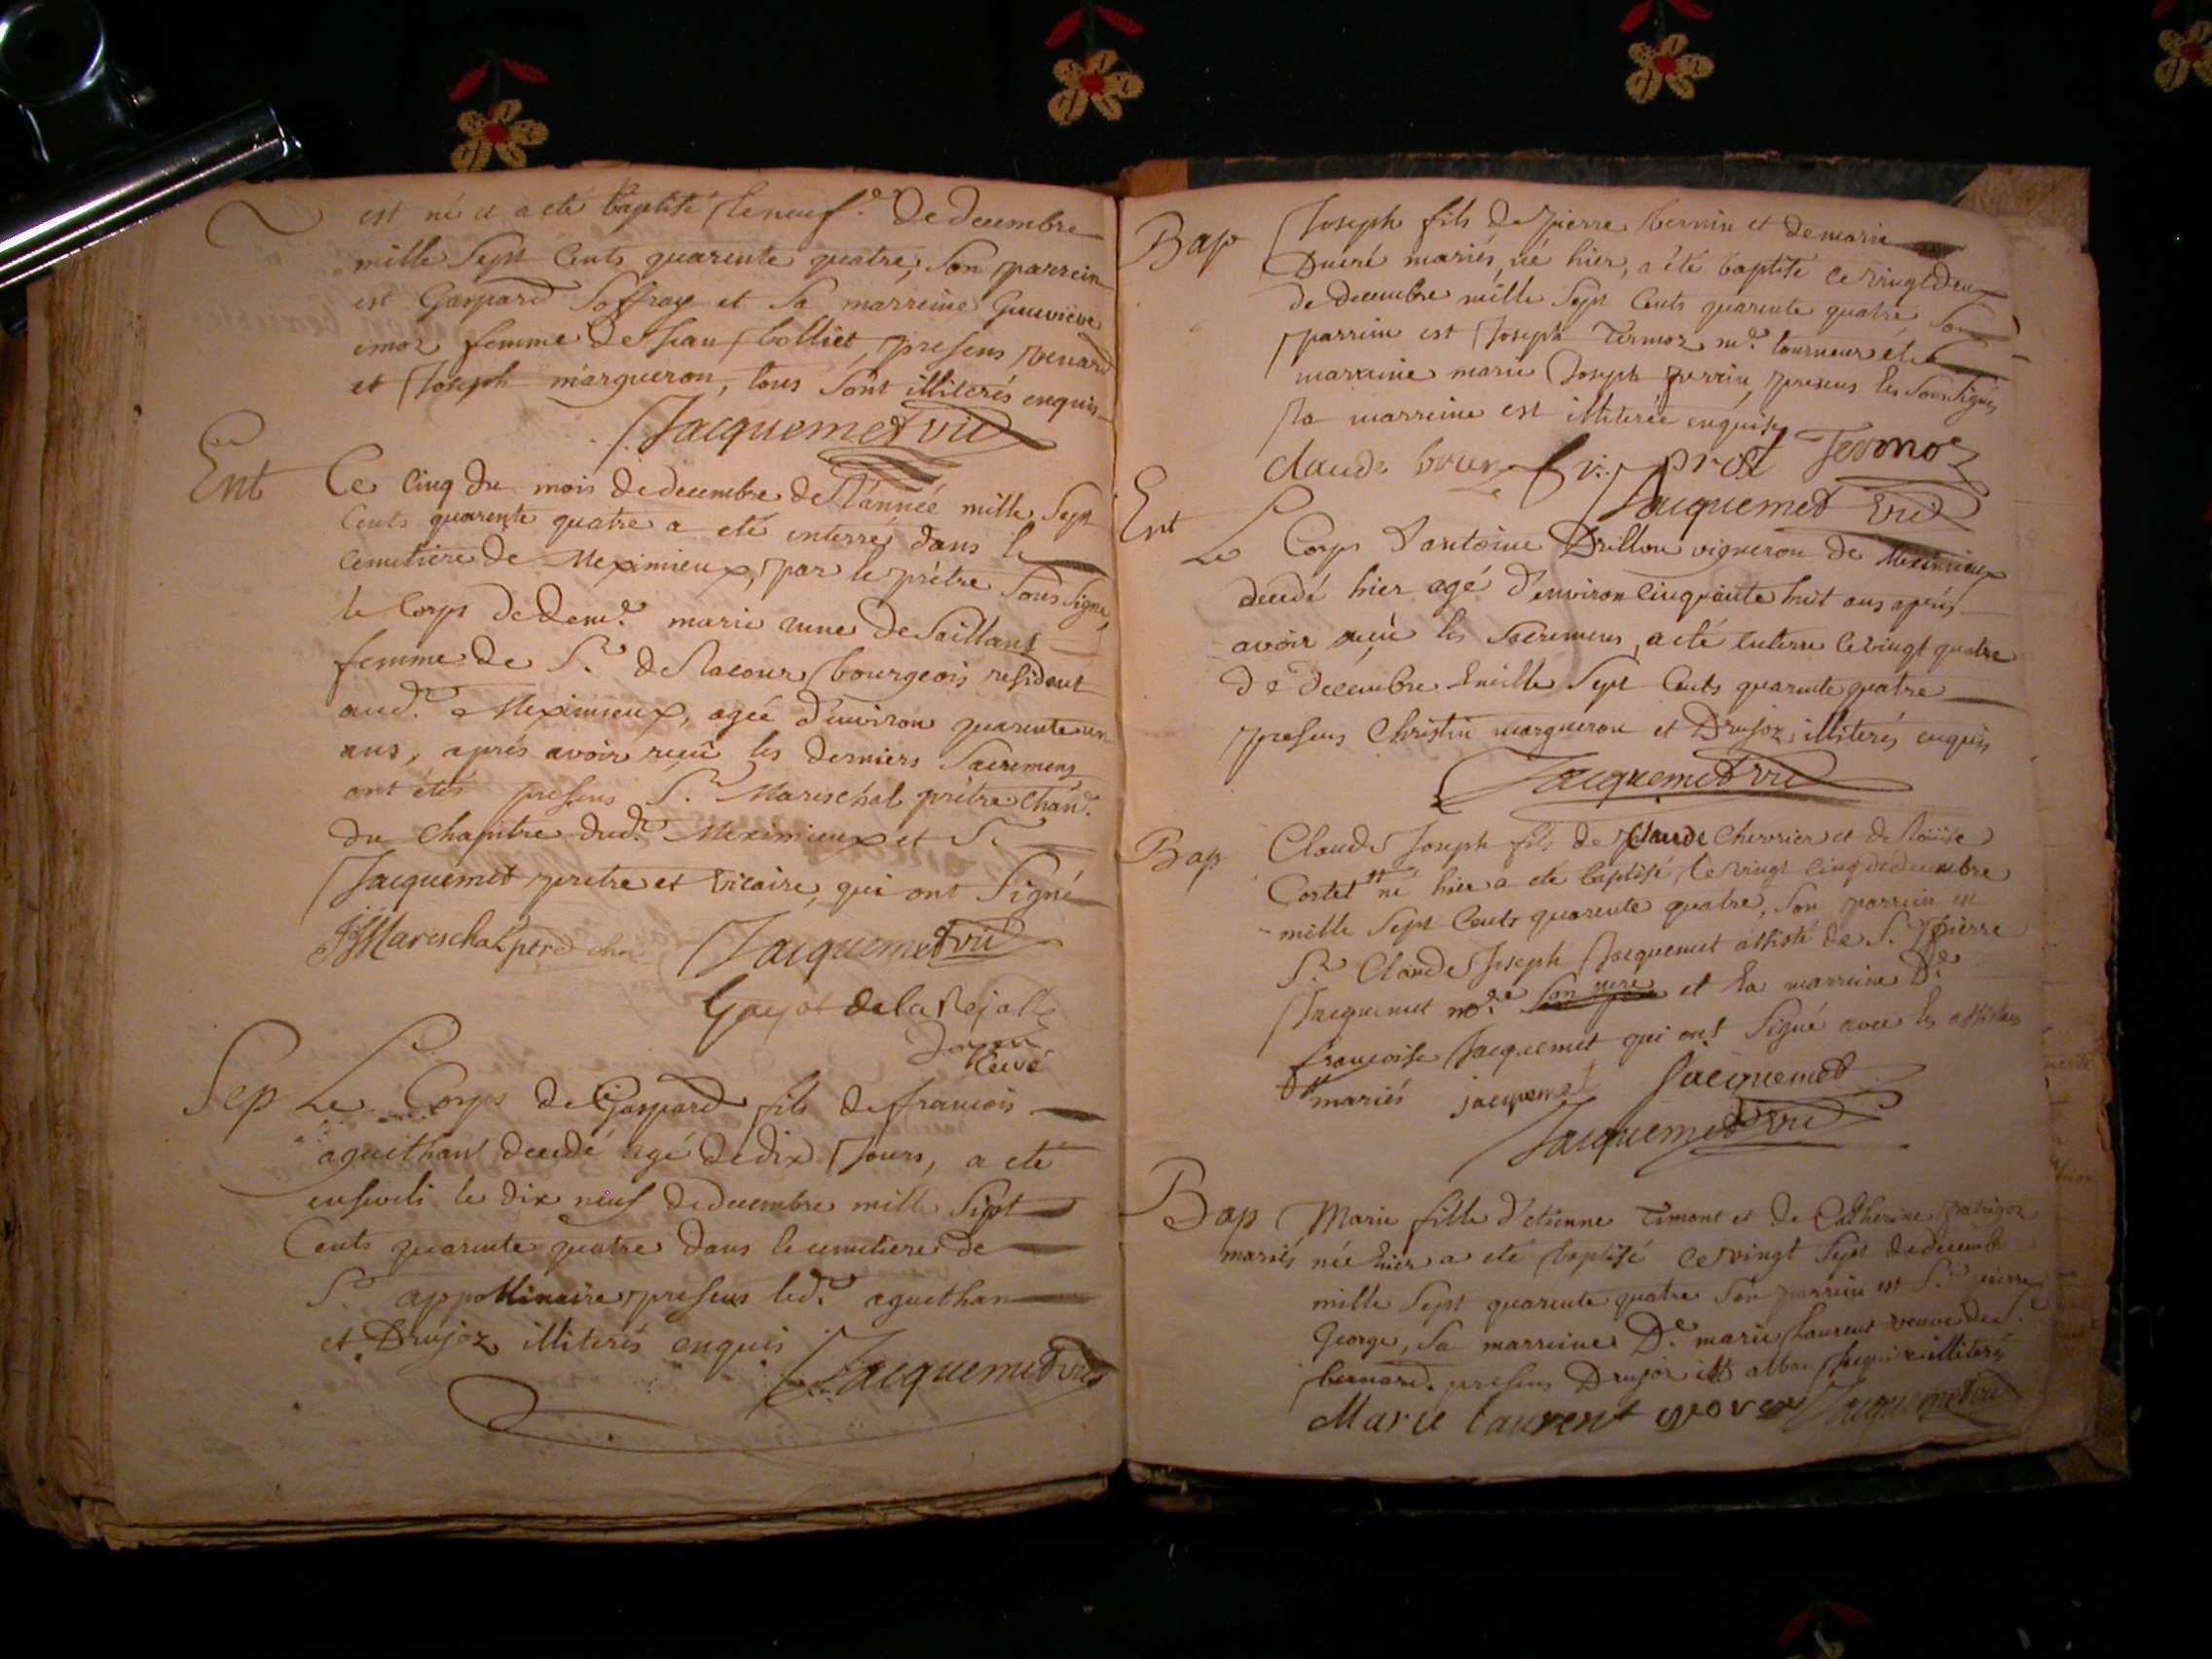 est né et a eté baptisé le neuf.e de decembre
mille sept cents quarente quatre, son parrein
est Gaspard Soffray et sa marreine Gueuvieve
emoz femme de Jean bolliet, presens benard
et Joseph margueron, tous sont illiterés enquis
Jacquemet vic
Ent Ce cinq du mois de decembre de l'année mille sept
cents quarente quatre a eté enterré dans le
cemetiere de Meximieux, par le prêtre sous signé,
le Corps de dem.e marie anne de Saillans
femme de S.r de Lacour bourgeois residant
aud.t Meximieux, agée d'environ quarente un
ans, aprés avoir reçû les derniers Sacremens
ont étés presens S.r Mareschal prêtre Chan.e
du Chapitre dud.t Meximieux et S.r
Jacquemet pretre et vicaire, qui ont signé
Mareschal ptre chan Jacquemet vic
Guyot de la
doyen
Curé
Sep Le Corps de Gaspard fils de francois
aguethant decedé agé de dix Jours, a eté
enseveli le dix neuf de decembre mille sept
Cents quarente quatre dans le cemetiere de
S.t appollinaire, presens led.t aguethan
et Drujoz illiterés enquis
Jacquemet vic
Bap Joseph fils de pierre bernin et de marie
Ducré mariés, né hier, a été baptisé ce vingt deux
de decembre mille sept cents quarente quatre son
parrein est Joseph Termoz m.e tourneur et sa
marreine marie Joseph perrin, presens les sousignés
la marreine est illiterée enquise
claude prost Termoz
Jacquemet vic
Ent Le Corps d'antoine Drillon vigneron de Meximieux
decedé hier agé d'environ cinquante huit ans aprés
avoir reçû les sacremens, a eté enterré le vingt quatre
de decembre mille sept Cents quarente quatre
presens Christin margueron et Drujoz illiterés enquis
Jacquemet vic
Bap Claude Joseph fils de Claude Chevrier et de Loüise
Costet # né hier a eté baptisé, le vingt cinq de decembre
mille sept Cents quarente quatre, son parrein est
S.r Claude Joseph Jacquemet assisté de S.r pierre
Jacquemet no.re son pere et la marreine D.e
francoise Jacquemet qui ont signé avec les assistans
# mariés jacquemet Jacquemet
Jacquemet vic
Bap Marie fille d'etienne Timont et de Catherine
mariés née hier a eté baptisé ce vingt sept de decemb
mille sept quarente quatre son parrein est S.r pierre
George, sa marreine D.e marie Laurent veuve de S.r
bernard. presens Drujoz et alban Jacquier illiterés
Marie laurent Jacquemet vic